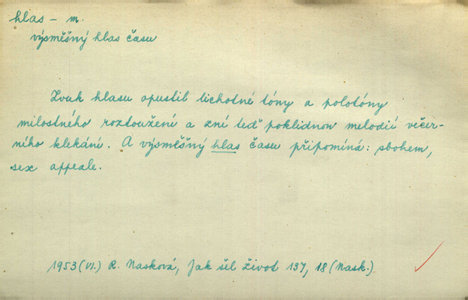 hlas – m.
výsměšný hlas času
Zvuk hlasu opustil lichotné tóny a polotóny
milostného roztoužení a zní teď poklidnou melodií večer-
ního klekání. A výsměšný hlas času připomíná: sbohem,
sex appeale.
1953 (VI.) R. Nasková, Jak šel život 137, 18 (Nask.)